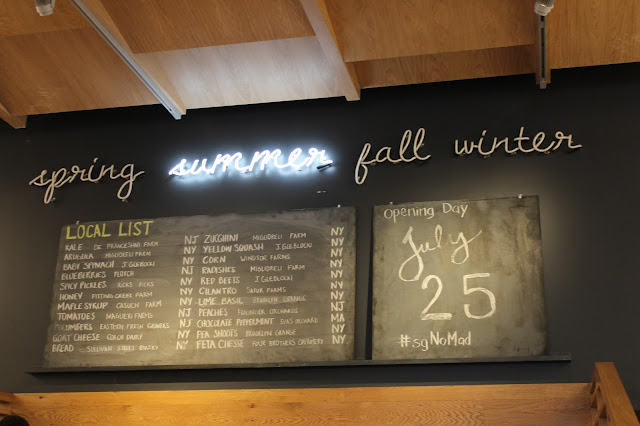 spring summer fall winter
LOCAL LIST
KALE DE FRANCESCHI FARM NJ
ARUGULA MIGLIORELI FARM NY
BABY SPINACH J.GLEBLOCKI NY
BLUEBERRIES NJ
SPICY PICKLES RICKS PICKS NY
HONEY FARM NY
MAPLE SYRUP FARM NY
TOMATOES FARMS NJ
CUCUMBERS EASTERN FRESH GROWERS NJ
GOAT CHEESE DAIRY NY
BREAD - SULLIVAN STREET BAKERY NY
ZUCCHINI MIGLIORELI FARM NY
YELLOW SQUASH J.GLEBLOCKI NY
CORN WINDSOR FARMS NY
RADISHES MIGLIORELI FARM NY
RED BEETS J.GLEBLOCKI NY
CILANTRO SATUR FARMS NY
LIME BASIL BROOKLYN GRANGE NY
PEACHES FRALINGER ORCHARDS NJ
CHOCOLATE PEPPERMINT ORCHARD MA
PEA SHOOTS BROOKLYN GRANGE NY
FETA CHEESE FOUR BROTHERS CREAMERY NY
Opening Day
July
25
#sgNoMad